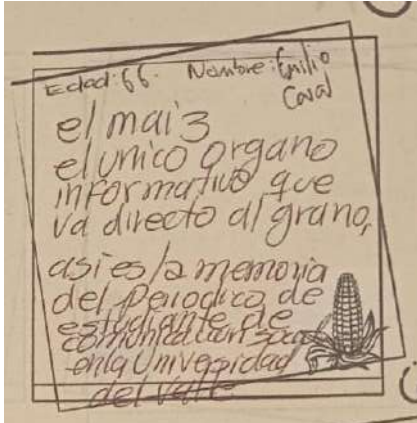 Edad: 66. Nombre: Emilio
el maiz
el unico organo
informativo que
va directo al grano,
asi es la memoria
del Periodico de
estudiante de
comunicacion
en la Universidad
del Valle